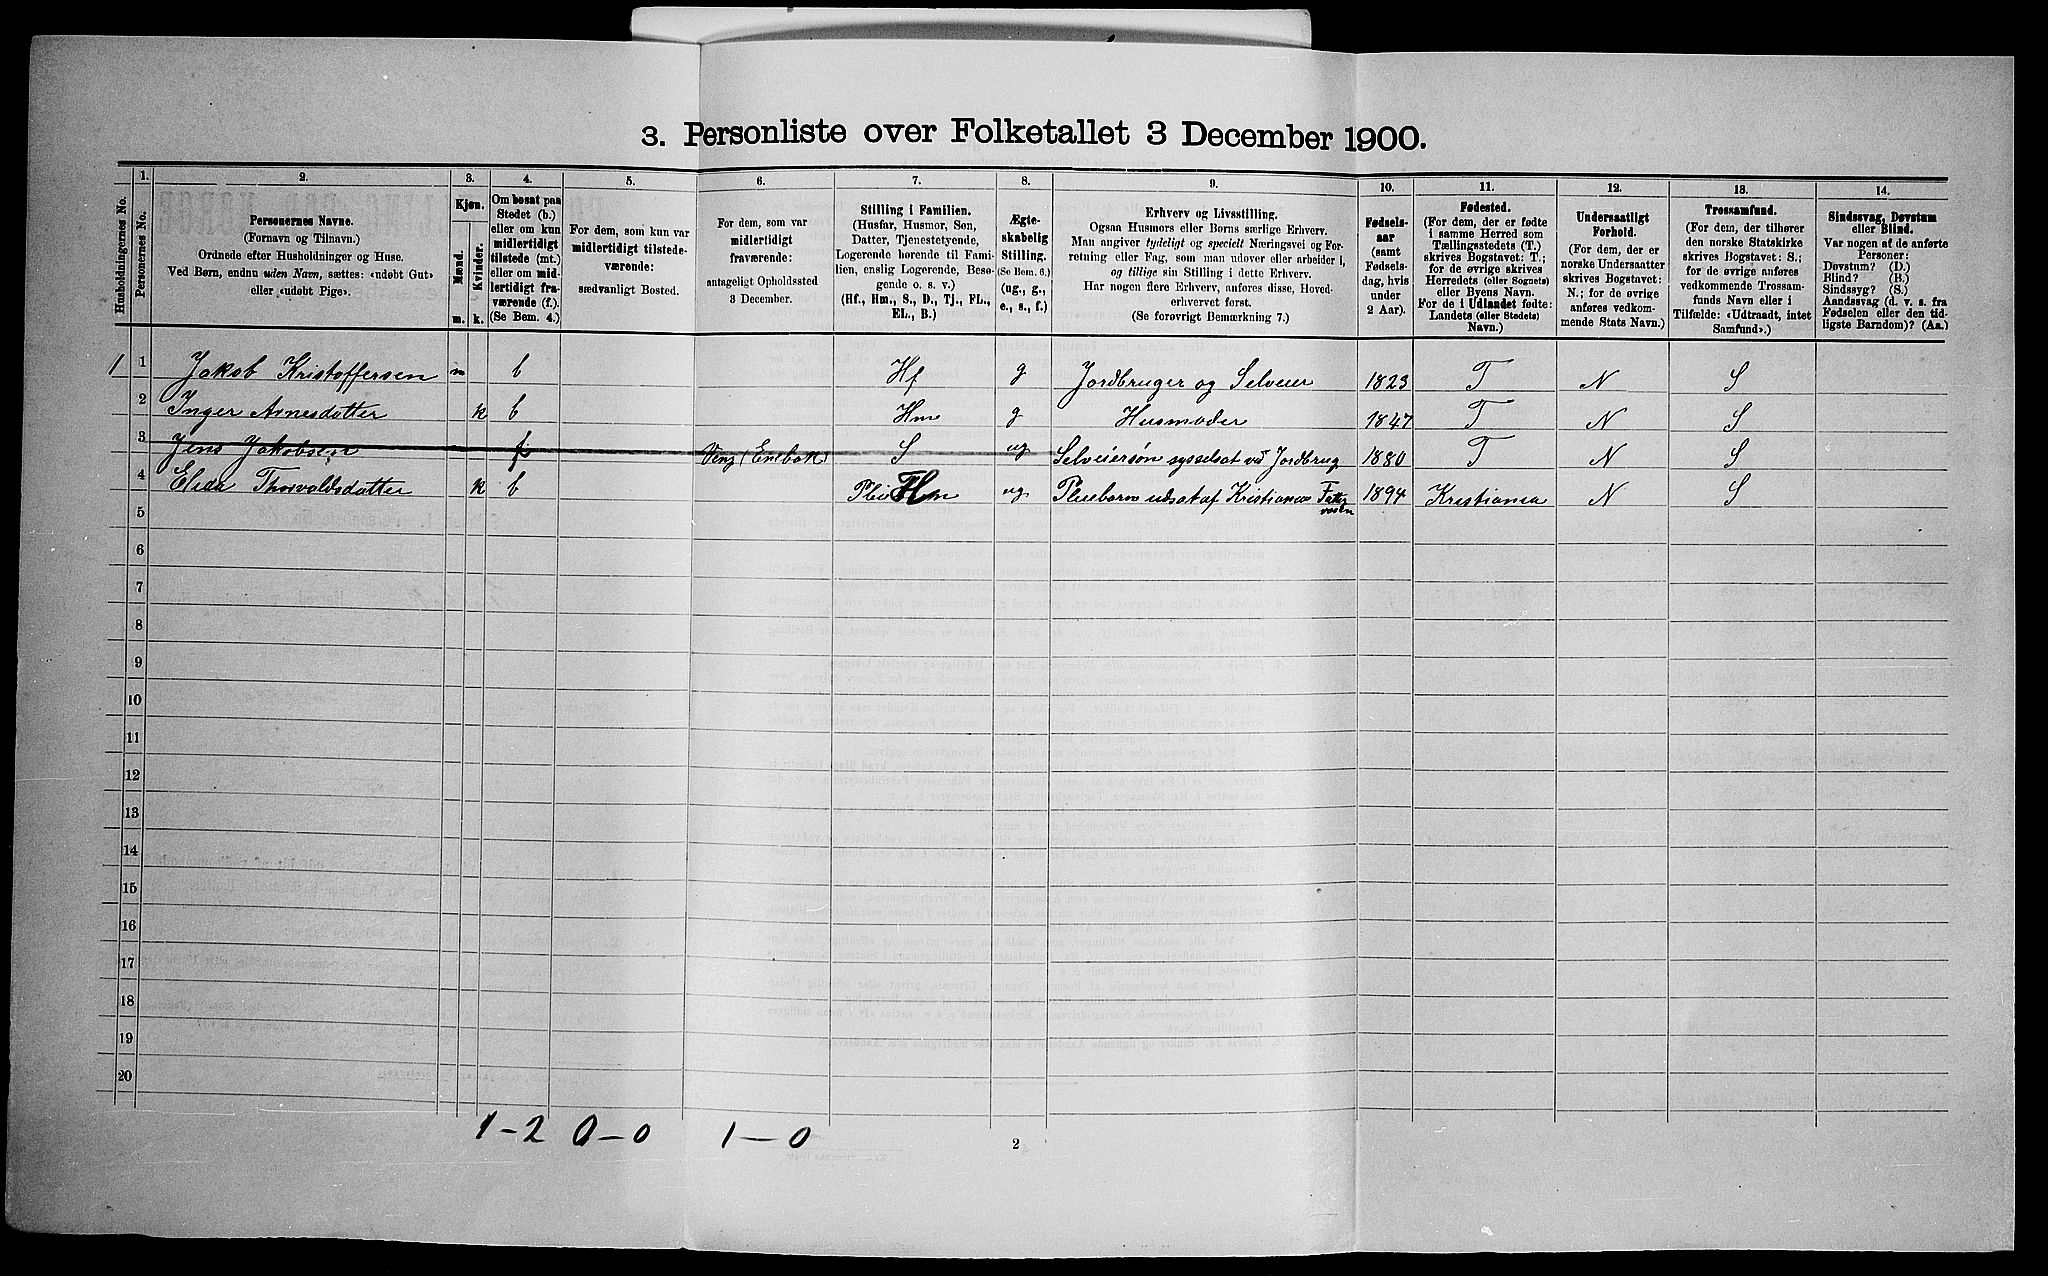 3. Personliste over Folketallet 3 December 1900.
Husholdningernes No.
1.
Personernes No.
2.
Personernes Navne.
(Fornavn og Tilnavn.)
Ordnede efter Husholdninger og Huse.
Ved Børn, endnu uden Navn, sættes: «udøbt Gut»
eller «udøbt Pige».
3.
Kjøn.
Mænd.
Kvinder.
m. k.
4.
Om bosat paa
Stedet (b.)
eller om kun
midlertidigt
tilstede (mt.)
eller om mid-
lertidigt fra-
værende (f.).
(Se Bem. 4.)
5.
For dem, som kun var
midlertidigt tilstede-
værende:
sædvanligt Bosted.
6.
For dem, som var
midlertidigt
fraværende:
antageligt Opholdssted
3 December.
7.
Stilling i Familien.
(Husfar, Husmor, Søn,
Datter, Tjenestetyende,
Logerende hørende til Fami-
lien, enslig Logerende, Besø-
gende o. s. v.)
(Hf., Hm., S., D., Tj., FL.,
EL., B.)
8.
Ægte-
skabelig
Stilling.
(Se Bem. 6.)
(ug., g.,
e., s., f.)
9.
Erhverv og Livsstilling.
Ogsaa Husmors eller Børns særlige Erhverv.
Man angiver tydeligt og specielt Næringsvei og For-
retning eller Fag, som man udøver eller arbeider i,
og tillige sin Stilling i dette Erhverv.
Har nogen flere Erhverv, anføres disse, Hoved-
erhvervet først.
(Se forøvrigt Bemærkning 7.)
10.
Fødsels-
aar
(samt
Fødsels-
dag, hvis
under
2 Aar).
11.
Fødested.
(For dem, der er fødte
i samme Herred som
Tællingsstedets (T.)
skrives Bogstavet: T.;
for de øvrige skrives
Herredets (eller Sognets)
eller Byens Navn.
For de i Udlandet fødte:
Landets (eller Stedets)
Navn.)
12.
Undersaatligt
Forhold.
(For dem, der er
norske Undersaatter
skrives Bogstavet:
N.; for de øvrige
anføres vedkom-
mende Stats Navn.)
13.
Trossamfund.
(For dem, der tilhører
den norske Statskirke
skrives Bogstavet: S.;
for de øvrige anføres
vedkommende Trossam-
funds Navn eller i
Tilfælde: «Udtraadt, intet
Samfund».)
14.
Sindssvag, Døvstum
eller Blind.
Var nogen af de anførte
Personer:
Døvstum? (D.)
Blind? (B.)
Sindssyg? (S.)
Aandssvag (d. v. s. fra
Fødselen eller den tid-
ligste Barndom)? (Aa.)
1 1 Jakob Kristoffersen m b Hf g Jordbruger og Selveier 1823 T N S
2 Inger Arnesdatter k b Hm g Husmoder 1847 T N S
3 Jens Jakobsen f (Enebak) S ug Selveiersøn sysselsat ved Jordbrug 1880 T N S
4 Elida Thorvaldsdatter k b ug Pleiebarn udsat af Kristiania 1894 Kristiania N S
5
6
7
8
9
10
11
12
13
14
15
16
17
18
19
20
1–2 0–0 1–0
2